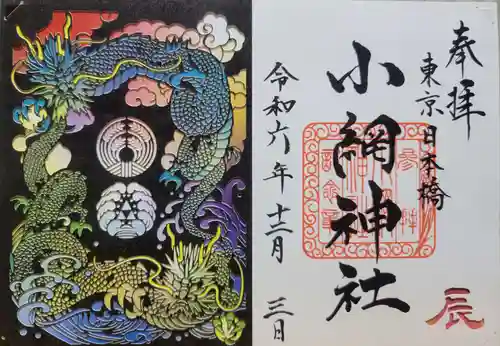 奉拝
東京日本橋
小網神社
令和六年十二月三日
辰